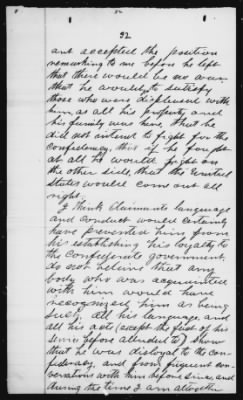 92
ant accepted the position
remarking to me before he left
that there would be no war
that he would to satisfy
those who were displeased with
him, as all his property and
his family was here, that he
did not intend to fight for the
confederacy, that if he fought
at all he would fight on
the other side, that the United
States would come out all
right.
I think Claimants language
and conduct would certainly
have prevented him from
his establishing his loyalty to
the confederate government.
do not believe that any
body who was acquainted
with him would have
recognized him as being
such, all his language, and
all his acts (except the fact of his
service before alluded to) show
that he was disloyal to the con-
federacy, and from frequent con-
versations with him before since, and
during the time I am altogether